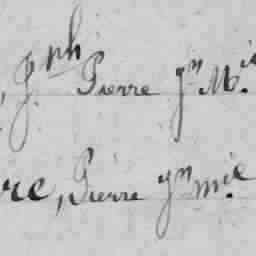 , Jph Pierre Jn M.
re, Pierre yn mie